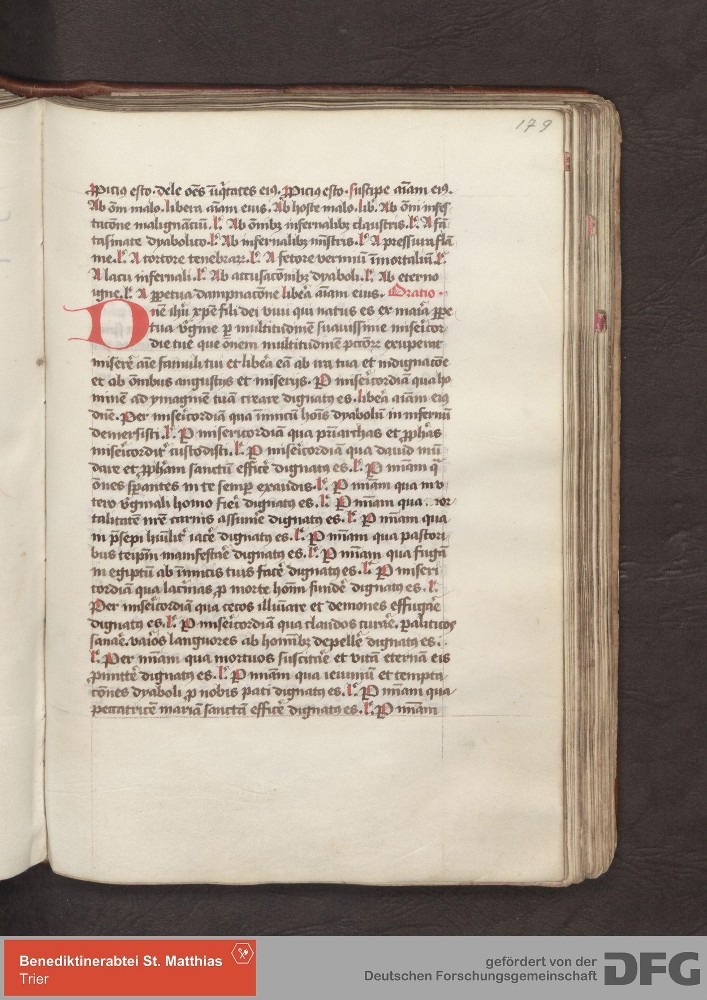 179
Ꝓpiciꝯ esto. dele oēs iīqͥtates eiꝯ. Ꝓpiciꝯ esto. suscipe aīam eiꝯ.
Ab om̄i malo. libera aīam eius. Ab hoste malo. lib. Ab om̄i infes
tacōne malignanciū. lᵃ. Ab om̄ibꝫ infernalibꝫ claustris. lᵃ. A fā
tasmate dyabolico. lᵃ. Ab infernalibꝫ mīstris. lᵃ. A pressura flā
me. lᵃ. A tortore tenebraꝝ. lᵃ. A fetore vermiū īmortaliū. lᵃ.
A lacu infernali. lᵃ. Ab accusacōībꝫ dyaboli. lᵃ. Ab eterno
igne. lᵃ. A ꝑpetua dampnacōne liberͣa aīam eius. Oratio.
Dnē ihū xp̄e fili dei viui qui natus es ex maria ꝑpe
tua vͥgine ꝑ multitudinē suauissime miẜicor
die tue que om̄em multitudinē pctōꝝ exuperat
miserē aīe famuli tui et liberͣa eā ab ira tua et indignacōe
et ab om̄ibus angustijs et miserijs. P miẜicordiā qua ho
minē ad ymaginē tuā creare dignatꝯ es. liberͣa aīam eiꝯ
dn̄e. Per miẜicordiā qua inimicū hoīs dyabolū in infernū
demersisti. lᵃ. P misericordiā qua pr̄iarchas et ꝓphās
miẜicordit̄ custodisti. lᵃ. P miẜicordiā qua dauid mū
dare et ꝓphām sanctū efficē dignatꝯ es. lᵃ. P mīam qͣ
om̄es sperantes in te semꝑ exaudis. lᵃ. P mīam qua in v
tero vͥginali homo fieri dignatꝯ es. lᵃ. P mīam qua mor
talitatē nr̄e carnis assumē dignatꝯ es. lᵃ. P mīam qua
in p̄sepi hūilit̄ iacē dignatꝯ es. lᵃ. P mīam qua pastori
bus teip̄m manifestare dignatꝯ es. lᵃ. P mīam qua fugā
in egiptū ab inīicis tuis facē dignatꝯ es. lᵃ. P miẜi
cordiā qua lacīmas ꝓ morte hoīm fundē dignatꝯ es. lᵃ.
Per miẜicordiā qua cecos illūiare et demones effugare
dignatꝯ es. lᵃ. P miẜicordiā qua claudos curare. paliticos
sanare. varios languores ab homībꝫ depellē dignatꝯ es.
lᵃ. Per mīam qua mortuos suscitare et vitā eternā eis
ꝓmittē dignatꝯ es. lᵃ. P mīam qua ieiuniū et tempta
cōnes dyaboli ꝓ nobis pati dignatꝯ es. lᵃ. P mīam qua
peccatricē mariā sanctā efficē dignatꝯ es. lᵃ. P mīam
Benediktinerabtei St. Matthias
Trier
gefördert von der
Deutschen Forschungsgemeinschaft
DFG